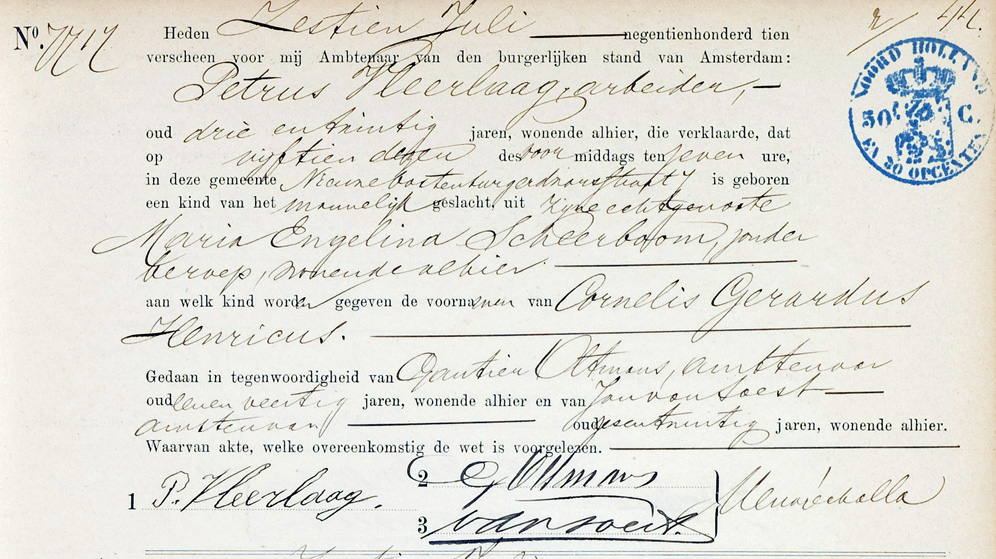 No. 7717 Heden Zestien Juli negentienhonderd tien
verscheen voor mij Ambtenaar van den burgerlijken stand van Amsterdam:
Petrus Heerlaag, arbeider,
oud drie en twintig jaren, wonende alhier, die verklaarde, dat
op vijftien dezer des voor middags ten zeven ure,
in deze gemeente 7 is geboren
een kind van het mannelijk geslacht, uit zijne echtgenoote
Maria Engelina Scheerboom, zonder
beroep, wonende alhier
aan welk kind worden gegeven de voornamen van Cornelis Gerardus
Henricus.
Gedaan in tegenwoordigheid van Ottmans, ambtenaar
oud veertig jaren, wonende alhier en van Jan van Soest
ambtenaar oud zes en twintig jaren, wonende alhier.
Waarvan akte, welke overeenkomstig de wet is voorgelezen.
1 P. Heerlaag.
2 G Ottmans
3 van Soest.
NOORD HOLLAND
50 C.
EN 30 OPCENTEN